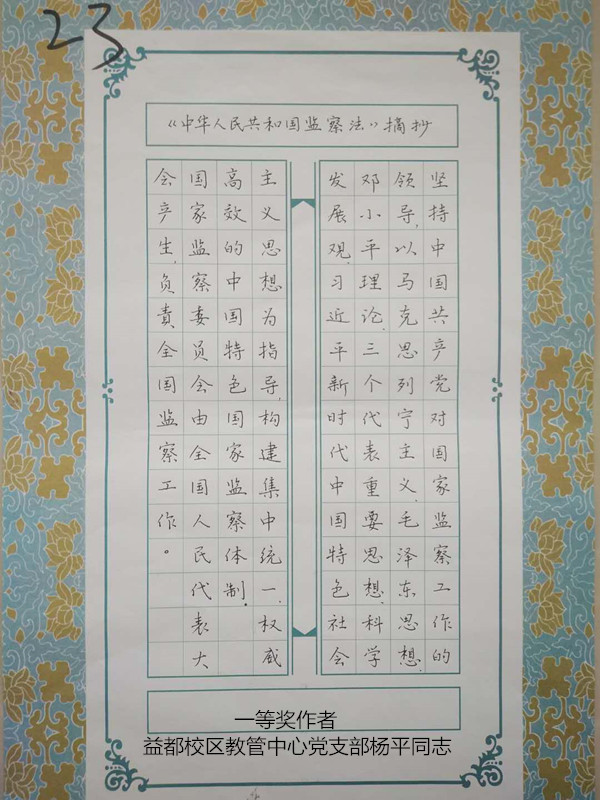 23
《中华人民共和国监察法》摘抄
坚持中国共产党对国家监察工作的
领导,以马克思列宁主义、毛泽东思想、
邓小平理论、三个代表重要思想、科学
发展观、习近平新时代中国特色社会
主义思想为指导,构建集中统一、权威
高效的中国特色国家监察体制。
国家监察委员会由全国人民代表大
会产生,负责全国监察工作。
一等奖作者
益都校区教管中心党支部杨平同志